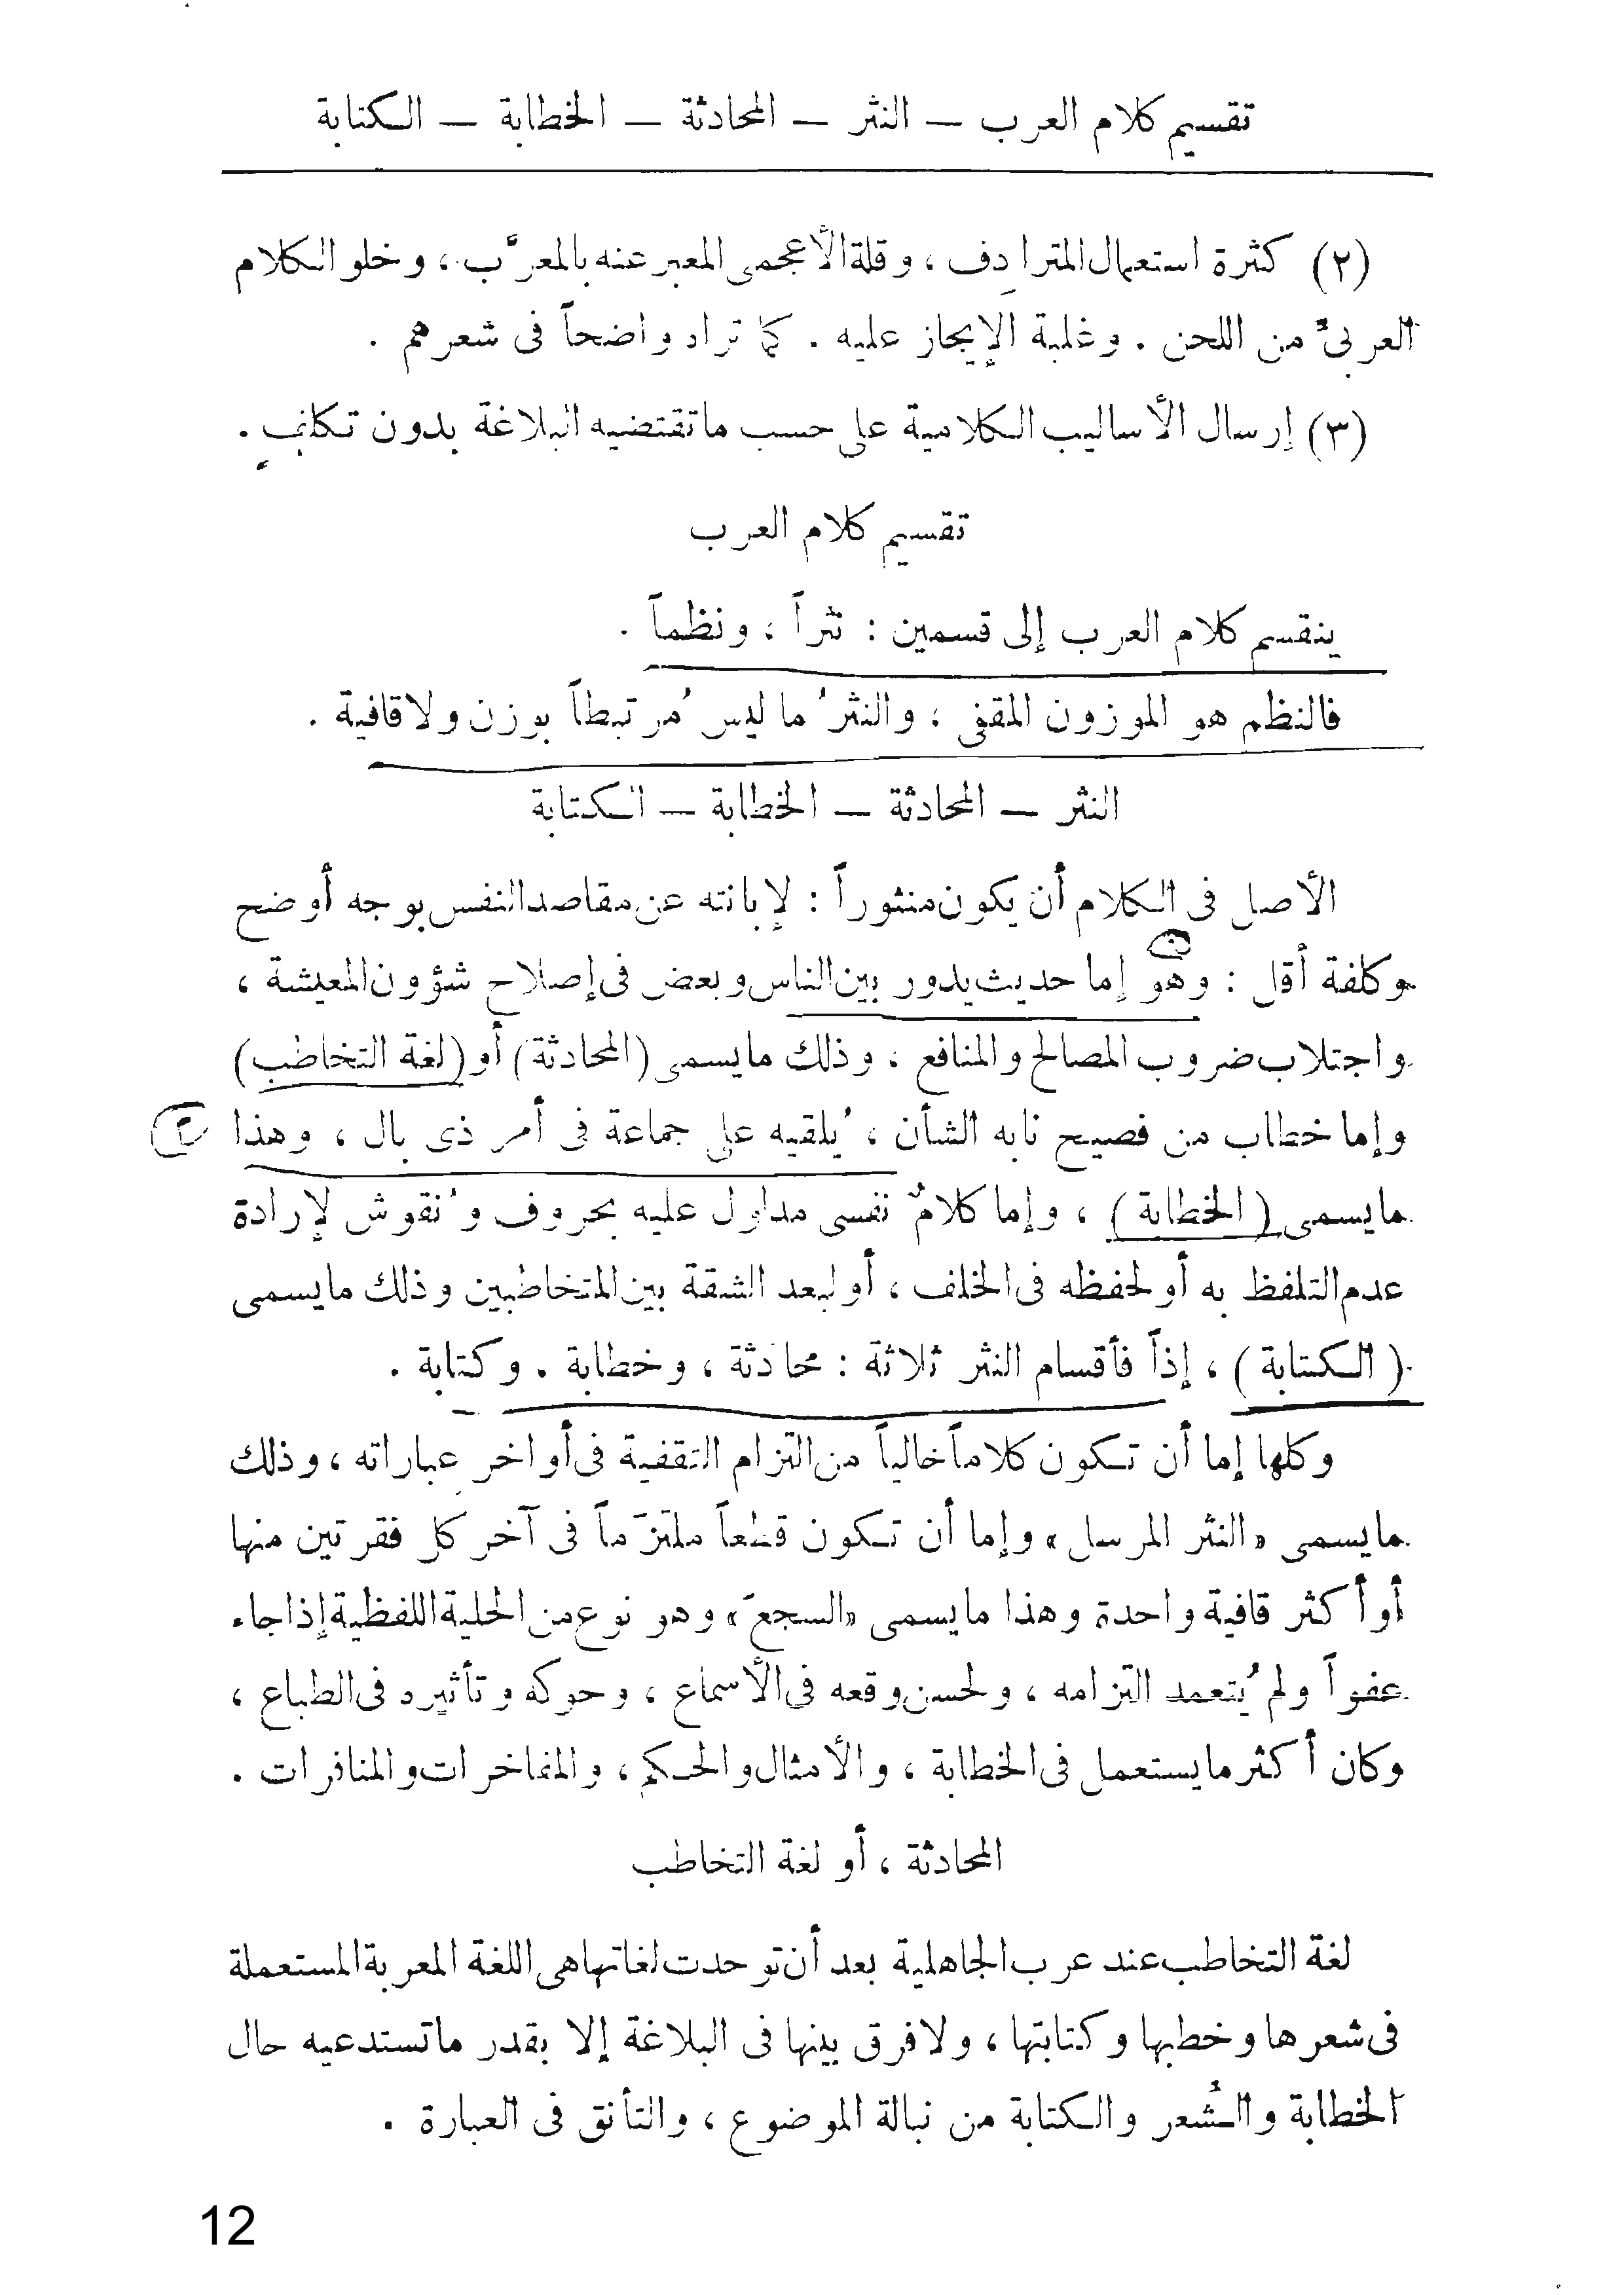 تقسيم كلام العرب — النثر — المحادثة — الخطابة — الكتابة
(٢) كثرة استعمال المترادف ، وقلة الأعجمى المعبر عنه بالمعرَّب ، وخلو الكلام
العربىّ من اللحن . وغلبة الإيجاز عليه . كما تراه واضحاً فى شعرهم .
(٣) إرسال الأساليب الكلامية على حسب ماتقتضيه البلاغة بدون تكلف .
تقسيم كلام العرب
ينقسم كلام العرب إلى قسمين : نثراً ، ونظماً .
فالنظم هو الموزون المقفى ، والنثرُ ما ليس مُرتبطاً بوزن ولا قافية .
النثر — المحادثة — الخطابة — الكتابة
الأصل فى الكلام أن يكون منثوراً : لإبانته عن مقاصد النفس بوجه أوضح
وكلفة أقل : وهو إما حديث يدور بين الناس وبعض فى إصلاح شؤون المعيشة ،
واجتلاب ضروب المصالح والمنافع ، وذلك مايسمى (المحادثة) أو (لغة التخاطب)
وإما خطاب من فصيح نابه الشأن ، يُلقيه على جماعة فى أمر ذى بال ، وهذا ٢
مايسمى (الخطابة) ، وإما كلامٌ نفسى مدلول عليه بحروف ونُقوش لإرادة
عدم التلفظ به أو لحفظه فى الخلف ، أو لبعد الشقة بين المتخاطبين وذلك مايسمى
(الكتابة) ، إذاً فأقسام النثر ثلاثة : محادثة ، وخطابة . وكتابة .
وكلها إما أن تكون كلاماً خالياً من التزام التقفية فى أواخر عباراته ، وذلك
مايسمى «النثر المرسل» وإما أن تكون قطعاً ملتزَماً فى آخر كل فقرتين منها
أو أكثر قافية واحدة وهذا مايسمى «السجع» وهو نوع من الحلية اللفظية إذا جاء
عفواً ولم يُتعمد التزامه ، ولحسن وقعه فى الأسماع ، وحوكه وتأثيره فى الطباع ،
وكان أكثر مايستعمل فى الخطابة ، والأمثال والحكم ، والمفاخرات والمنافرات .
المحادثة ، أو لغة التخاطب
لغة التخاطب عند عرب الجاهلية بعد أن توحدت لغاتها هى اللغة المعربة المستعملة
فى شعرها وخطبها وكتابتها ، ولا فرق بينها فى البلاغة إلا بقدر ماتستدعيه حال
الخطابة والشعر والكتابة من نبالة الموضوع ، والتأنق فى العبارة .
12